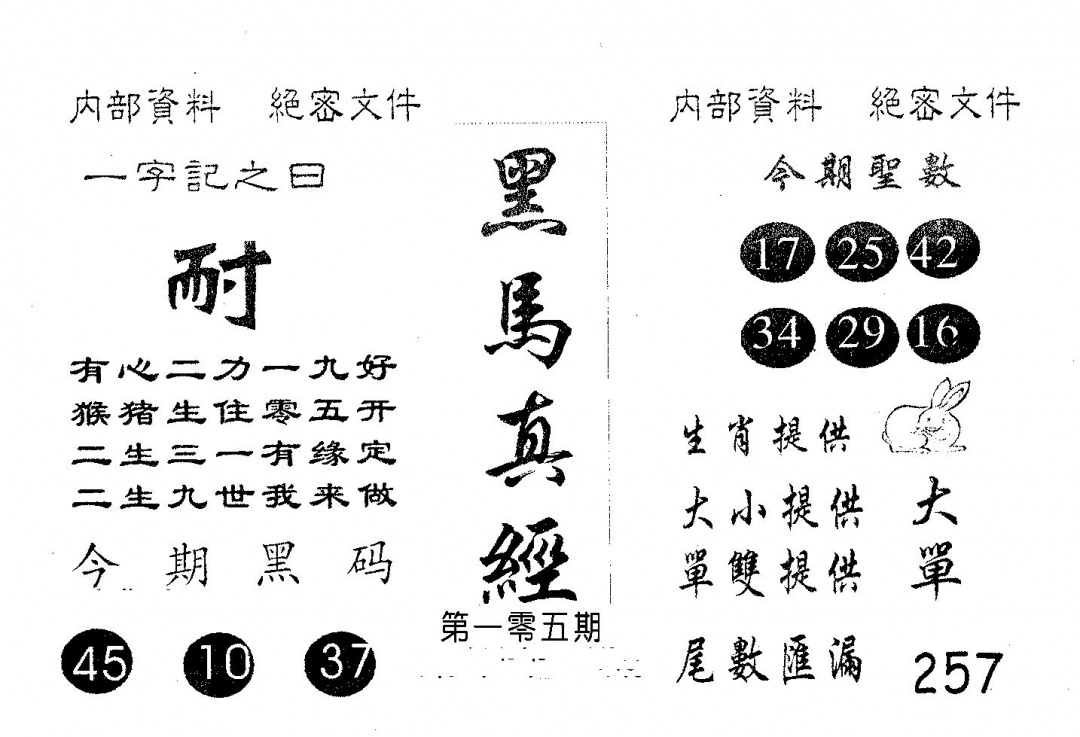 内部資料 絕密文件
一字記之曰
耐
有心二力一九好
猴猪生住零五开
二生三一有缘定
二生九世我来做
今期黑码
45 10 37
黑馬真經
第一零五期
内部資料 絕密文件
今期聖數
17 25 42
34 29 16
生肖提供
大小提供 大
單雙提供 單
尾數匯漏 257